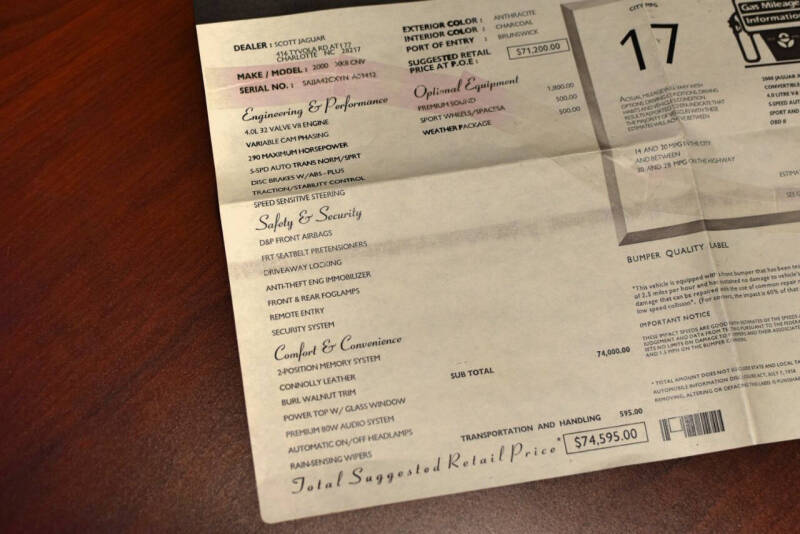 DEALER : SCOTT JAGUAR
416 TYVOLA RD AT I 77
CHARLOTTE NC 28217
MAKE / MODEL : 2000 XK8 CNV
SERIAL NO. :
EXTERIOR COLOR : ANTHRACITE
INTERIOR COLOR : CHARCOAL
PORT OF ENTRY : BRUNSWICK
SUGGESTED RETAIL
PRICE AT P.O.E : $71,200.00
Engineering & Performance
4.0L 32 VALVE V8 ENGINE
VARIABLE CAM PHASING
290 MAXIMUM HORSEPOWER
5-SPD AUTO TRANS NORM/SPRT
DISC BRAKES W/ABS-PLUS
TRACTION/STABILITY CONTROL
SPEED SENSITIVE STEERING
Safety & Security
D&P FRONT AIRBAGS
FRT SEATBELT PRETENSIONERS
DRIVEAWAY LOCKING
ANTI-THEFT ENG IMMOBILIZER
FRONT & REAR FOGLAMPS
REMOTE ENTRY
SECURITY SYSTEM
Comfort & Convenience
2-POSITION MEMORY SYSTEM
CONNOLLY LEATHER
BURL WALNUT TRIM
POWER TOP W/ GLASS WINDOW
PREMIUM 80W AUDIO SYSTEM
AUTOMATIC ON/OFF HEADLAMPS
RAIN-SENSING WIPERS
Optional Equipment
PREMIUM SOUND 1,800.00
SPORT WHEELS/SPACESA 500.00
WEATHER PACKAGE 500.00
SUB TOTAL 74,000.00
TRANSPORTATION AND HANDLING 595.00
Total Suggested Retail Price * $74,595.00
CITY MPG
17
ACTUAL MILEAGE WILL VARY WITH
OPTIONS, DRIVING CONDITIONS, DRIVING
HABITS AND VEHICLE'S CONDITION.
RESULTS REPORTED TO EPA INDICATE THAT
THE MAJORITY OF VEHICLES WITH THESE
ESTIMATES WILL ACHIEVE BETWEEN
14 AND 20 MPG IN THE CITY
AND BETWEEN
20 AND 28 MPG ON THE HIGHWAY
Gas Mileage
Information
2000 JAGUAR
CONVERTIBLE
4.0 LITRE V8
5-SPEED AUTO
SPORT AND
OBD II
ESTIMA
SEE
BUMPER QUALITY LABEL
*This vehicle is equipped with a front bumper that has been
of 2.5 miles per hour and has sustained no damage to vehicle's
damage that can be repaired with the use of common repair
low speed collision*. (For corners, the impact is 60% of that
IMPORTANT NOTICE
THESE IMPACT SPEEDS ARE GOOD FAITH ESTIMATES OF THE SPEEDS
JUDGEMENT AND DATA FROM TESTS PURSUANT TO THE FEDERAL
SETS NO LIMITS ON DAMAGE TO BUMPERS AND THEIR ASSOCIATED
AND 1.5 MPH ON THE BUMPER CORNERS.
* TOTAL AMOUNT DOES NOT INCLUDE STATE AND LOCAL
AUTOMOBILE INFORMATION DISCLOSURE ACT, JULY 7, 1958
REMOVING, ALTERING OR DEFACING THIS LABEL IS PUNISHABLE